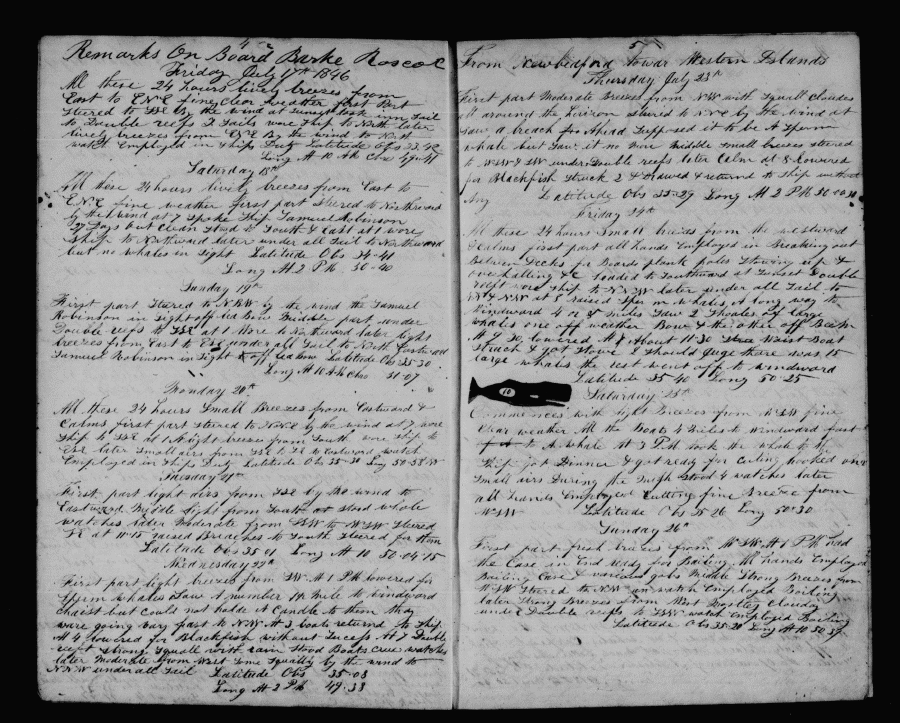 4
Remarks On Board Barke Roscoe
Friday July 17th 1846
All these 24 hours lively breezes from
East to ENE fine clear weather first Part
Steered to SSE By the wind at Sunset took inn Sail
to Double reefs 2 Sails wore Ship to North later
lively breezes from ENE By the wind to North
watch Employed in Ships Duty Latitude Obs 33-42
Long At 10 AM Chro
Saturday 18th
All these 24 hours livele breezes from East to
ENE fine weather first part Steered to Northward
by the wind at 7 Spoke Ship Samuel Robinson
Days but Clean Stood to South & East at wore
Ship to Northward later under all Sail to Northward
but no whales in Sight Latitude Obs 34-41
Long At 2 PM 50-40
Sunday 19th
First part Steered to NNW by the wind the Samuel
Robinson in Sight off Lea Bow Middle part under
Double reefs to SSE at 1 Wore to Northward later light
breezes from East to ESE under all Sail to North Eastward
Samuel Robinson in Sight off lea bow Latitude Obs 35-30
Long At 10 AM Chro 51-07
Monday 20th
All these 24 hours Small Breezes from Eastward &
Calms first part Steered to NNE by the wind at 7 wore
Ship to SSE at 1 Night breezes from South wore Ship to
ESE later Small airs from SSE to Eastward watch
Employed in Ships Duty Latitude Obs 35-30 Long 50-58 W
Tuesday 21st
First part light airs from SSE by the wind to
Eastward Middle light from South at Stood whole
watches later Moderate from SSW to WSW Steered
SE at 11-15 raised Breaches to South Steered for them
Latitude Obs 35 01 Long At 10 50-04-15
Wednesday 22nd
First part light breezes from SW At 1 PM lowered for
Sperm whales Saw A number 1/4 Mile to windward
chaist but could not holde A Candle to them they
ware going very fast to NW At 3 boats returned to Ship
At 4 lowered for Blackfish without Sucess At 7 Double
reeft Strong Squall with rain Stood Boats Crue watches
later Moderate from West Some Squally by the wind to
NNW under all Sail Latitude Obs 35-08
Long At 2 PM 49-38
5
From Newbedford Towar Western Islands
Thursday July 23d
First part Moderate Breezes from NW with Squall Cloudes
all around the horizon Steered to NNE by the wind at
Saw a breach for Ahead Supposed it to be A Sperm
whale but Saw it no more Middle Small breezes Steered
to WSW & SW under Double reefs later Calm at 8 lowered
for Blackfish Struck 2 & Drawed & returned to Ship without
Any Latitude Obs 35-29 Long At 2 PM
Friday 24th
All these 24 hours Small breezes from the westward
& Calms first part all hands Employed in Breaking out
Between Decks for Boards plank poles Stowing up &
Overhalling &c headed to Southward at Sunset Double
reeft wore Ship to NNW later under all Sail to
NW & NNW at 8 raised Sperm whales A long way to
Windward 4 or 5 miles Saw 2 Shoales of large
whales one off weather Bow & the other off Beem
At 10 lowered At About 11-30 Waist Boat
Struck & got Stove I Should Juge there was 15
large whales the rest went off to windward
Latitude 35-40 Long 50-25
10
Saturday 25th
Commences with light Breezes from WSW fine
Clear weather All the Boats 4 Miles to Windward fast
to A whale At 3 PM took the whale to the
Ship got Dinner & got ready for Cuting hooked on
Small airs During the Nigh Stood 4 watches later
all hands Employed Cutting fine Breeze from
WSW Latitude Obs 35-26 Long 50-30
Sunday 26th
First part fresh breezes from WSW At 1 PM had
the Case in End ready for Boiling All hands Employed
Bailing Case & various jobs Middle Strong Breezes from
WSW Steered to NW watch Employed Boiling
later Strong Breezes from West Cloudey
under Double reefs to SSW watch Employed Boiling
Latitude Obs 35-20 Long At 10 50-37